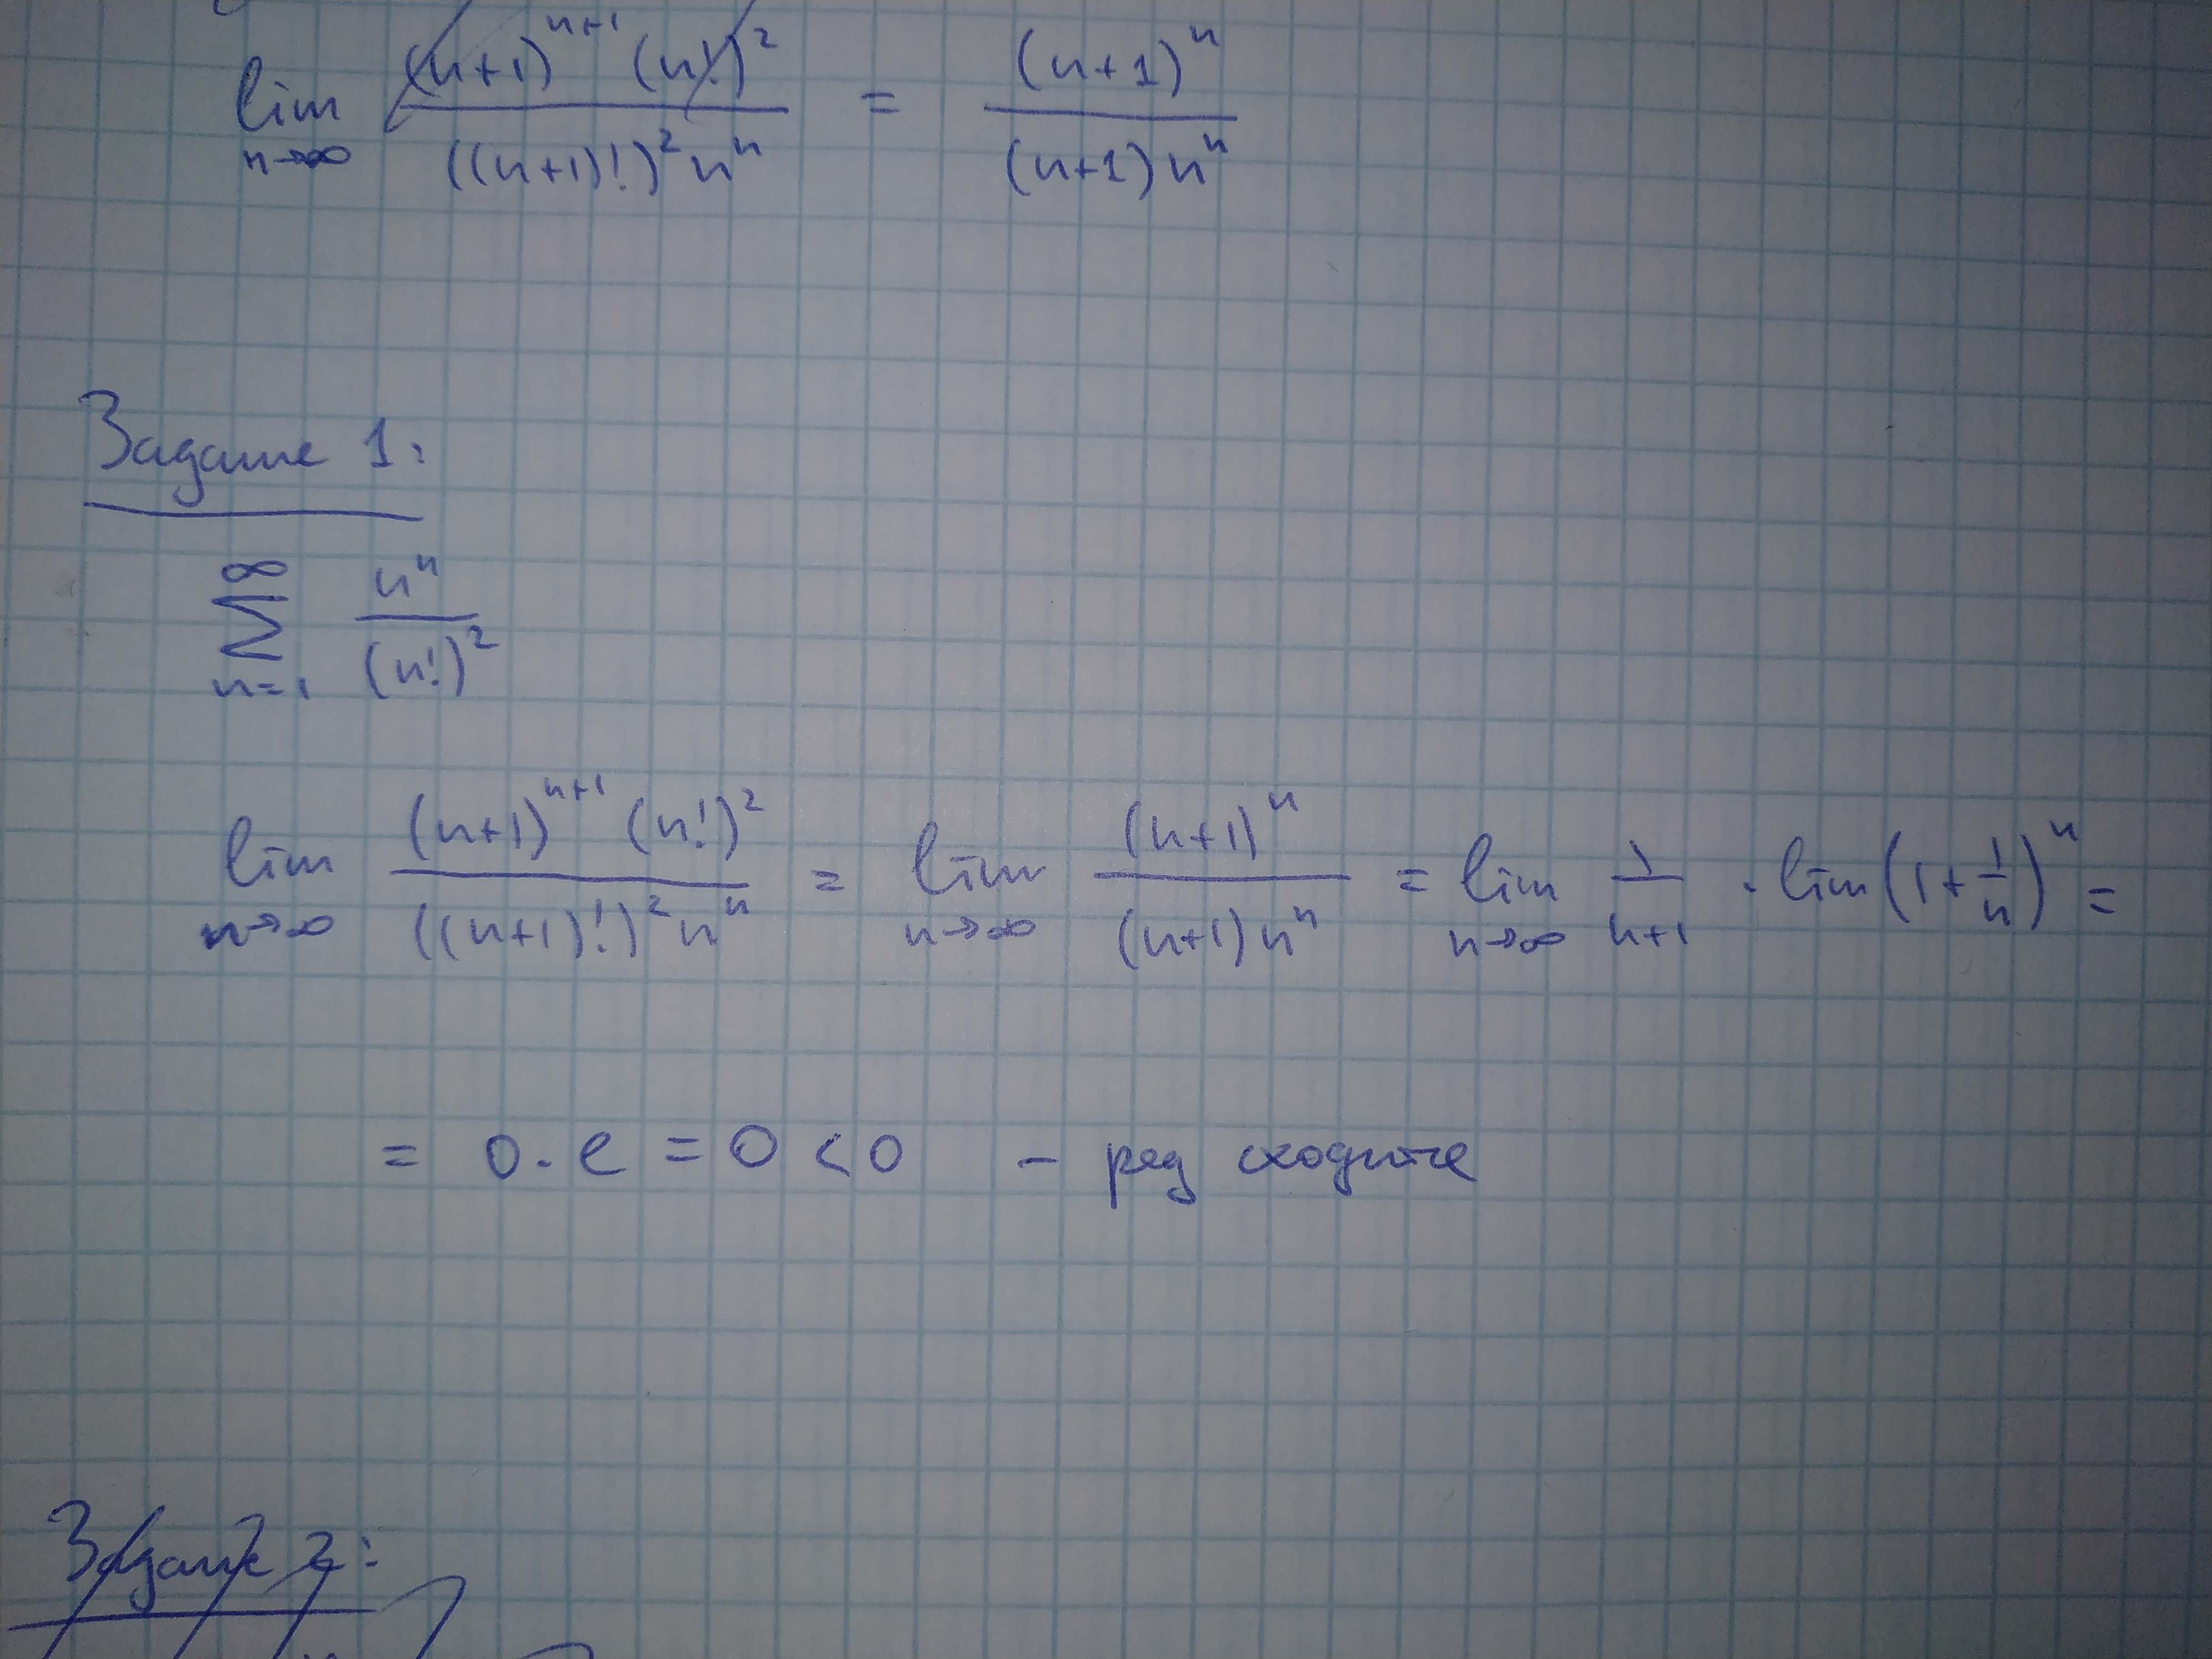 lim n→∞ (n+1)^{n+1} (n!)^2 / ((n+1)!)^2 n^n = (n+1)^n / (n+1) n^n
Задание 1:
∑_{n=1}^{∞} n^n / (n!)^2
lim n→∞ (n+1)^{n+1} (n!)^2 / ((n+1)!)^2 n^n = lim n→∞ (n+1)^n / (n+1) n^n = lim n→∞ 1/(n+1) · lim (1 + 1/n)^n =
= 0 · e = 0 < 0 – ряд сходится
Задание 2: